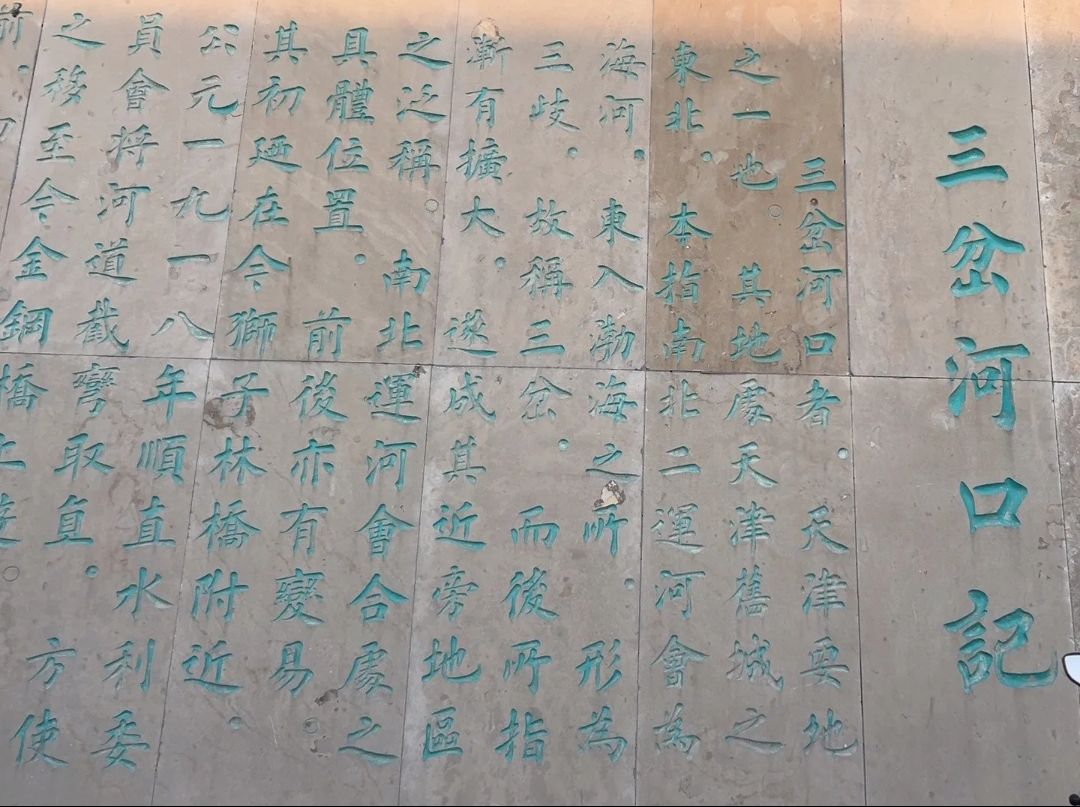 三岔河口記
三岔河口者.天津要地
之一也。其地處天津舊城之
東北.本指南北二運河會為
海河.東入渤海之所.形為
三歧.故稱三岔.而後所指
漸有擴大.遂成其近旁地區
之泛稱。南北運河會合處之
具體位置.前後亦有變易。
其初廼在今獅子林橋附近.
公元一九一八年順直水利委
員會将河道截彎取直.方使
之移至今金鋼橋上游。
前.